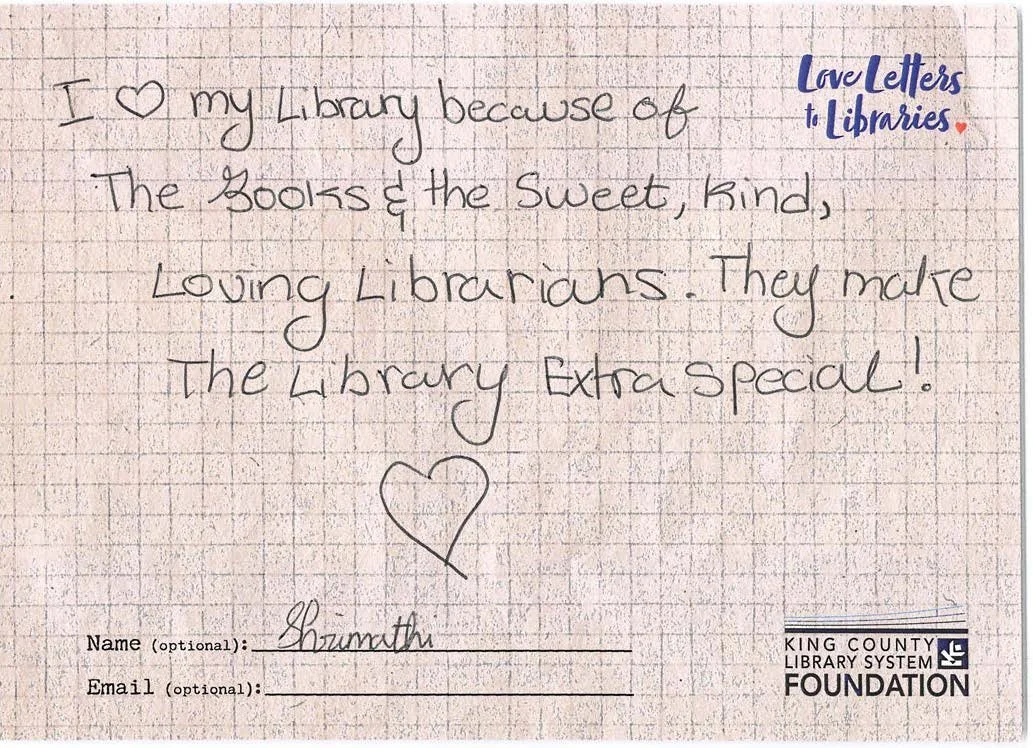 I ♡ my Library because of
The Books & the Sweet, kind,
Loving Librarians. They make
The Library Extra special!
♡
Love Letters
to Libraries
Name (optional): Shrimathi
Email (optional):
KING COUNTY
LIBRARY SYSTEM
FOUNDATION